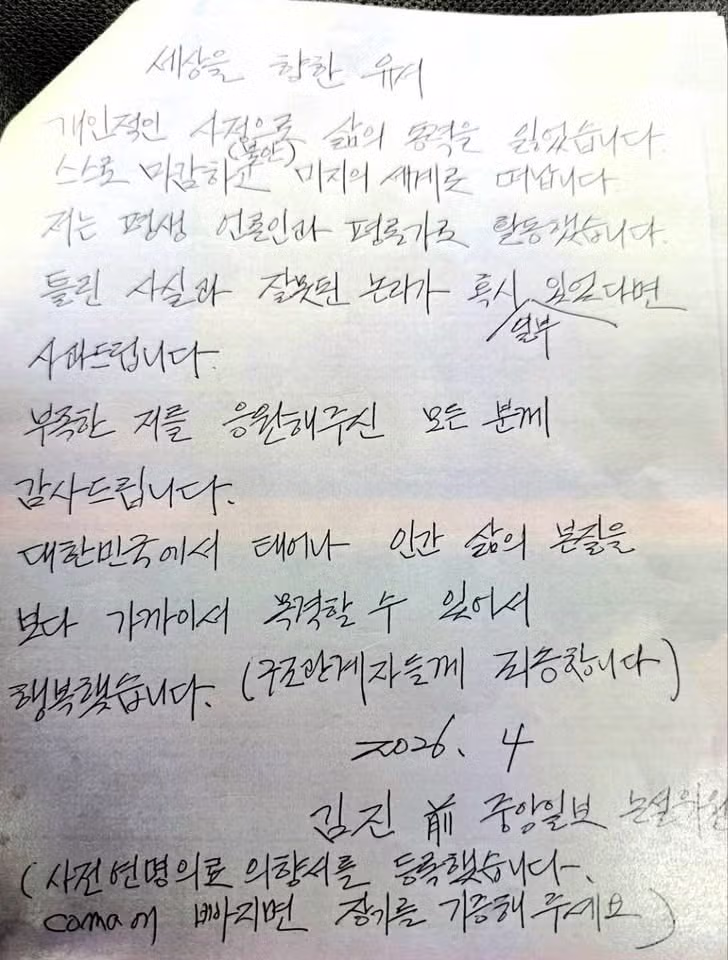 세상을 향한 유서
개인적인 사정으로 삶의 동력을 잃었습니다.
스스로 마감하고 (불안) 미지의 세계로 떠납니다.
저는 평생 언론인과 평론가로 활동했습니다.
틀린 사실과 잘못된 논리가 혹시 있었다면
일부
사과드립니다.
부족한 저를 응원해주신 모든 분께
감사드립니다.
대한민국에서 태어나 인간 삶의 본질을
보다 가까이서 목격할 수 있어서
행복했습니다. (구조관계자들께 죄송합니다)
2026. 4
김진 前 중앙일보 논설위원
(사전연명의료 의향서를 등록했습니다.
coma에 빠지면 장기를 기증해 주세요)